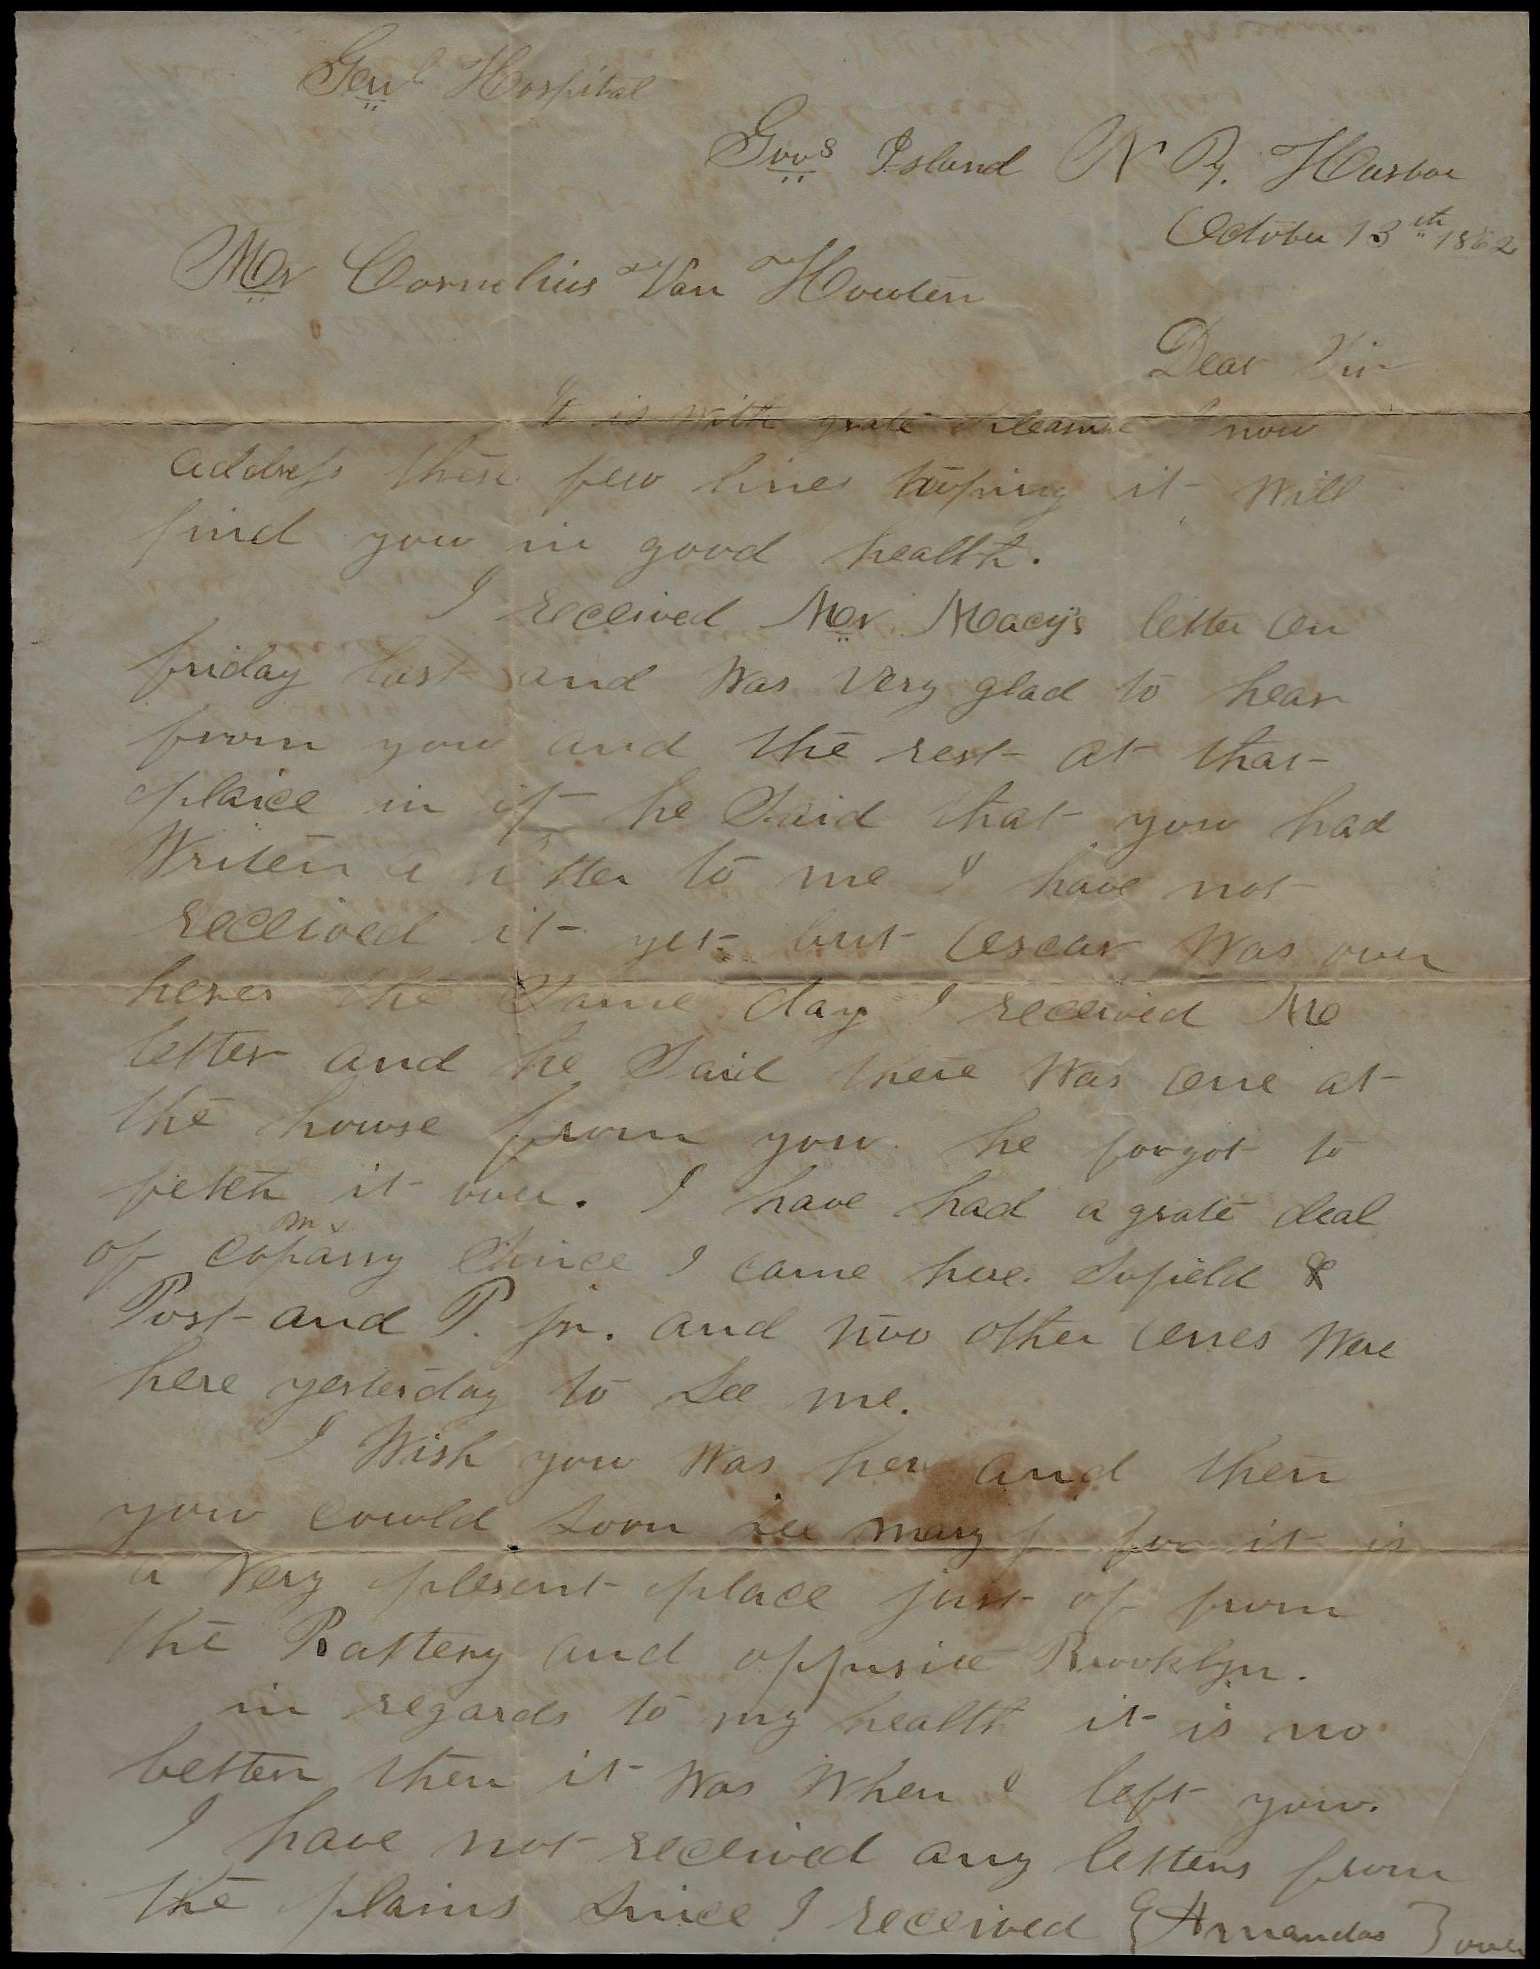 Genl Hospital
Govs Island N Y. Harbor
October 13th 1862
Mr Cornelius Van Houten
Dear Sir
It is with grate pleasure I now
address these few lines hoping it will
find you in good health.
I received Mr Macy's letter on
friday last and was very glad to hear
from you and the rest at that
plaice in it he said that you had
writen a letter to me I have not
received it yet but Oscar was over
here the same day I received Me
letter and he said there was one at
the house from you he forgot to
fetch it over. I have had a grate deal
of company since I came here. Sofield &
Post and P. jr. and two other ones were
here yesterday to see me.
I wish you was her and then
you could soon see mary j for it is
a very plesent place just of from
the Battery and opposite Brooklyn.
in regards to my health it is no
better then it was when I left you.
I have not received any letters from
the plains since I received {Amandas} over